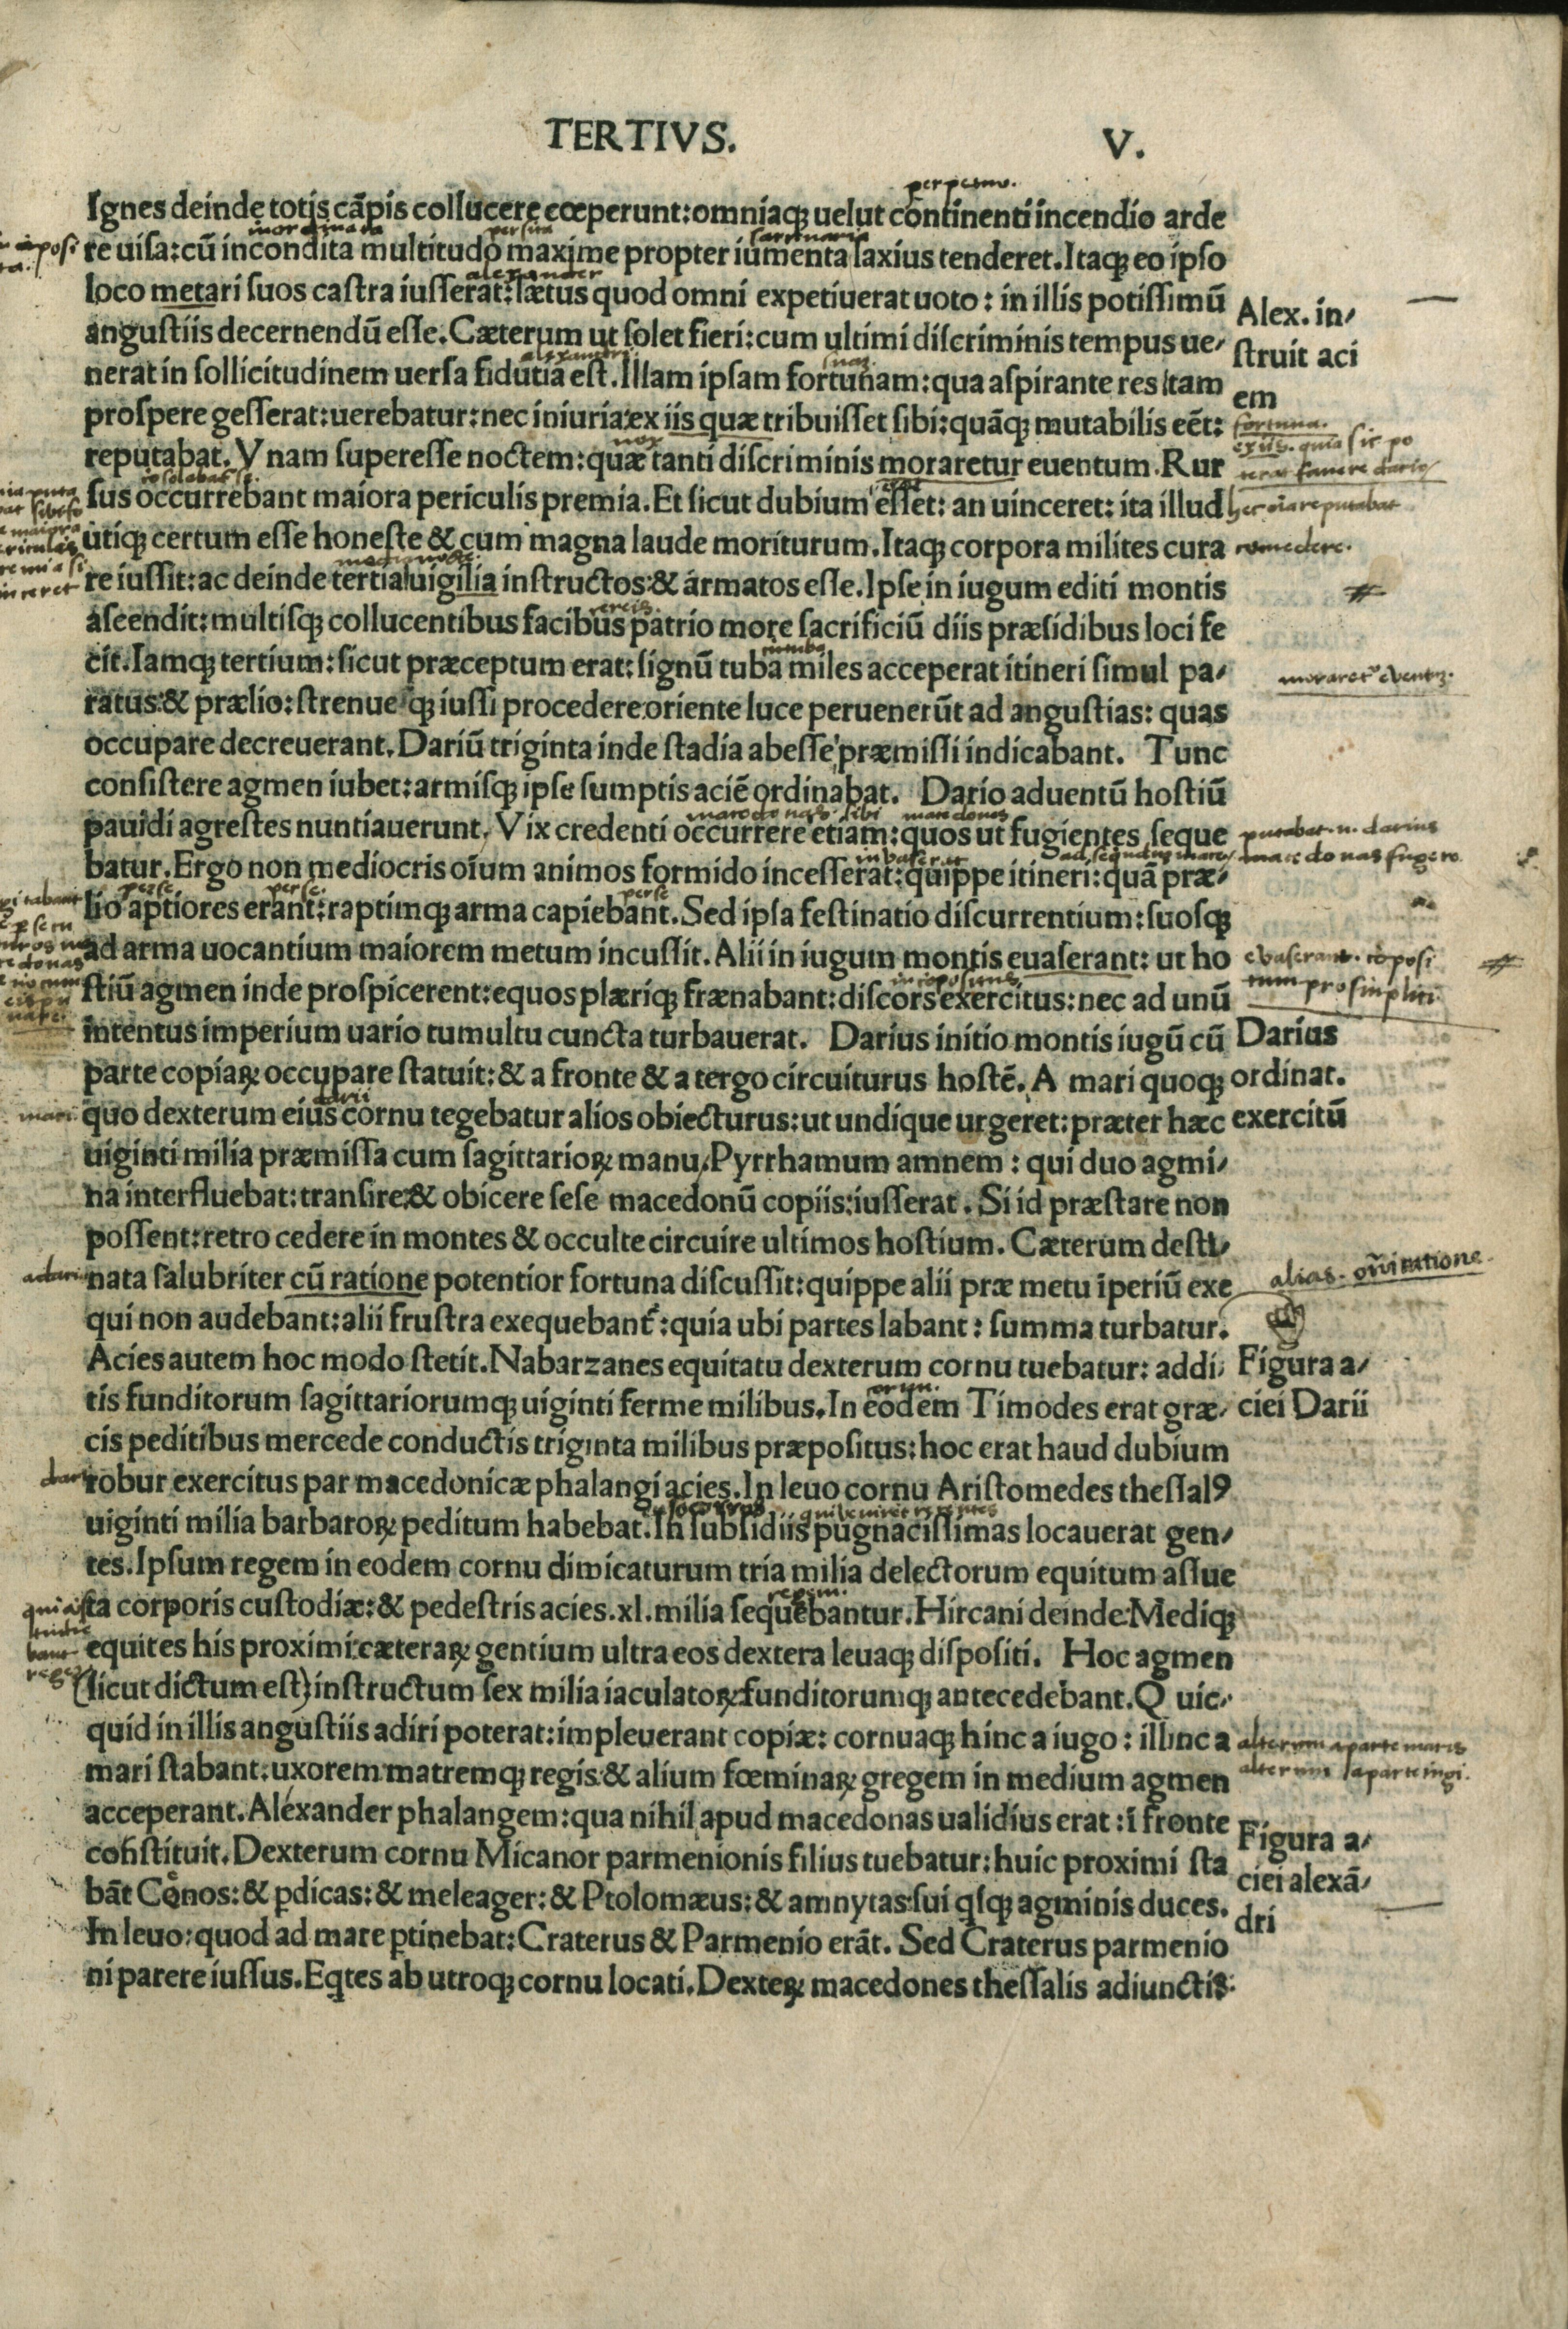 TERTIVS.
V.
Ignes deinde totis cāpis collucere cœperunt:omniaqꝫ uelut continenti incendio arde
re uisa:cū incondita multitudo maxime propter iumenta laxius tenderet.Itaqꝫ eo ipso
loco metari suos castra iusserat:lætus quod omni expetiuerat uoto: in illis potissimū
angustiis decernendū esse.Cæterum ut solet fieri:cum ultimi discriminis tempus ue-
nerat in sollicitudinem uersa fidutia est.Illam ipsam fortunam:qua aspirante res tam
prospere gesserat:uerebatur:nec iniuria:ex iis quæ tribuisset sibi:quāqꝫ mutabilis eēt:
reputabat.Vnam superesse noctem:quæ tanti discriminis moraretur euentum.Rur
sus occurrebant maiora periculis premia.Et sicut dubium esset: an uinceret: ita illud
utiqꝫ certum esse honeste & cum magna laude moriturum.Itaqꝫ corpora milites cura
re iussit:ac deinde tertia uigilia instructos:& armatos esse.Ipse in iugum editi montis
ascendit:multisqꝫ collucentibus facibus patrio more sacrificiū diis præsidibus loci fe
cit.Iamqꝫ tertium:sicut præceptum erat:signū tuba miles acceperat itineri simul pa-
ratus:& prælio:strenue qꝫ iussi procedere:oriente luce peruenerūt ad angustias: quas
occupare decreuerant.Dariū triginta inde stadia abesse præmissi indicabant. Tunc
consistere agmen iubet:armisqꝫ ipse sumptis aciē ordinabat. Dario aduentū hostiū
pauidi agrestes nuntiauerunt.Vix credenti occurrere etiam:quos ut fugientes seque
batur.Ergo non mediocris oīum animos formido incesserat:quippe itineri:quā præ-
lio aptiores erant:raptimqꝫ arma capiebant.Sed ipsa festinatio discurrentium:suosqꝫ
ad arma uocantium maiorem metum incussit.Alii in iugum montis euaserant: ut ho
stiū agmen inde prospicerent:equos plæriqꝫ frænabant:discors exercitus:nec ad unū
intentus imperium uario tumultu cuncta turbauerat. Darius initio montis iugū cū
parte copiaꝝ occupare statuit:& a fronte & a tergo circuiturus hostē.A mari quoqꝫ
quo dexterum eius cornu tegebatur alios obiecturus:ut undique urgeret:præter hæc
uiginti milia præmissa cum sagittarioꝝ manu.Pyrrhamum amnem: qui duo agmi-
na interfluebat:transire:& obicere sese macedonū copiis:iusserat. Si id præstare non
possent:retro cedere in montes & occulte circuire ultimos hostium.Cæterum desti-
nata salubriter cū ratione potentior fortuna discussit:quippe alii præ metu īperiū exe
qui non audebant:alii frustra exequebant᷑:quia ubi partes labant: summa turbatur.
Acies autem hoc modo stetit.Nabarzanes equitatu dexterum cornu tuebatur: addi-
tis funditorum sagittariorumqꝫ uiginti ferme milibus.In eodem Timodes erat græ-
cis peditibus mercede conductis triginta milibus præpositus:hoc erat haud dubium
robur exercitus par macedonicæ phalangi acies.In leuo cornu Aristomedes thessalꝰ
uiginti milia barbaroꝝ peditum habebat.In subsidiis pugnacissimas locauerat gen-
tes.Ipsum regem in eodem cornu dimicaturum tria milia delectorum equitum assue
ta corporis custodiæ:& pedestris acies.xl.milia sequebantur.Hircani deinde:Mediqꝫ
equites his proximi:cæteraꝝ gentium ultra eos dextera leuaqꝫ dispositi. Hoc agmen
(sicut dictum est)instructum sex milia iaculatoꝝ:funditorumqꝫ antecedebant.Quic-
quid in illis angustiis adiri poterat:impleuerant copiæ: cornuaqꝫ hinc a iugo: illinc a
mari stabant:uxorem matremqꝫ regis:& alium fœminaꝝ gregem in medium agmen
acceperant.Alexander phalangem:qua nihil apud macedonas ualidius erat:ī fronte
constituit.Dexterum cornu Micanor parmenionis filius tuebatur:huic proximi sta
bāt Cęnos:& ꝑdicas:& meleager:& Ptolomæus:& amnytas:sui qsqꝫ agminis duces.
In leuo:quod ad mare ꝑtinebat:Craterus & Parmenio erāt. Sed Craterus parmenio
ni parere iussus.Eqtes ab utroqꝫ cornu locati.Dexteꝝ macedones thessalis adiunctis:
Alex. in-
struit aci
em
fortuna.
ex iis. quia sic po
terat fauere dario
hec etiā reputabat
comedere.
moraret᷑ euentū.
putabat.n. darius
macedonas fugere
euaserant. cōposi
tum pro simplici
Darius
ordinat.
exercitū
alias. oī ratione.
Figura a-
ciei Darii
alterum a parte maris
alterum a parte iugi.
Figura a-
ciei alexā-
dri
perpetuo.
alexander
nox
macedonas
perse
perse
perse
darii
regem.